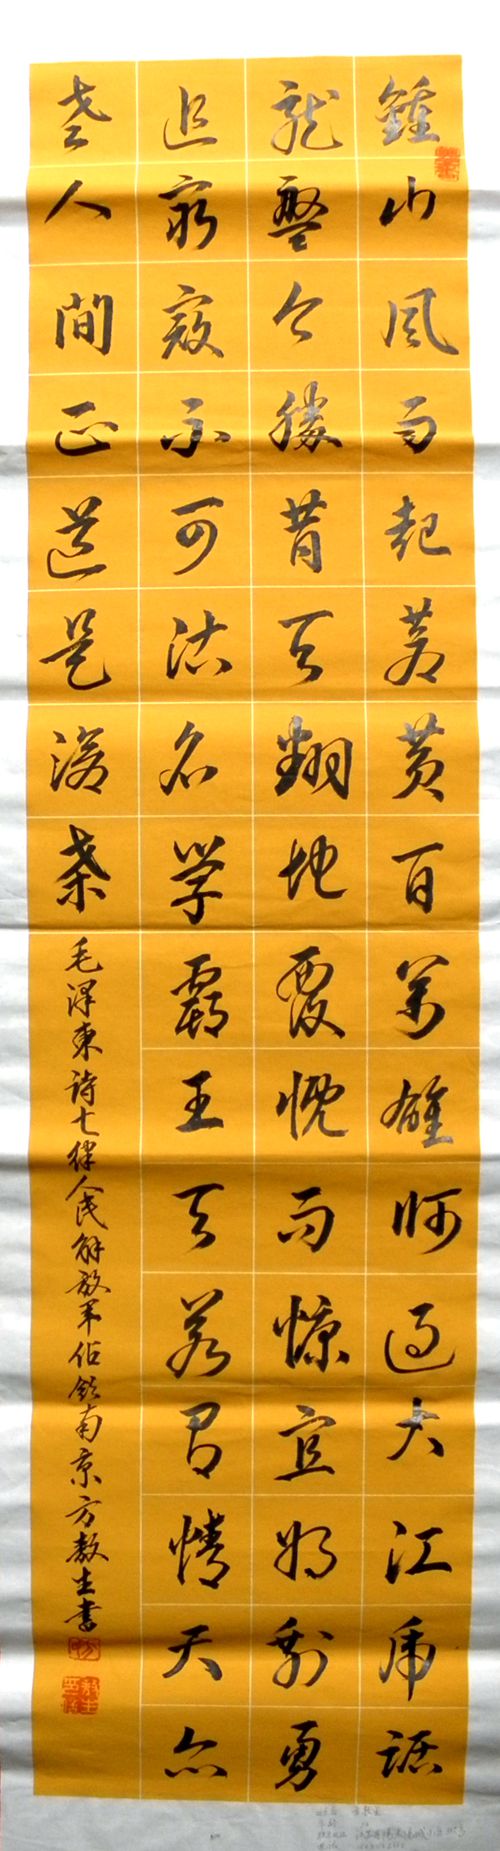 鍾山風雨起蒼黄百萬雄師過大江虎踞
龍盤今勝昔天翻地覆慨而慷宜將剩勇
追窮寇不可沽名學霸王天若有情天亦
老人間正道是滄桑
毛澤東詩七律人民解放軍佔領南京方教生書